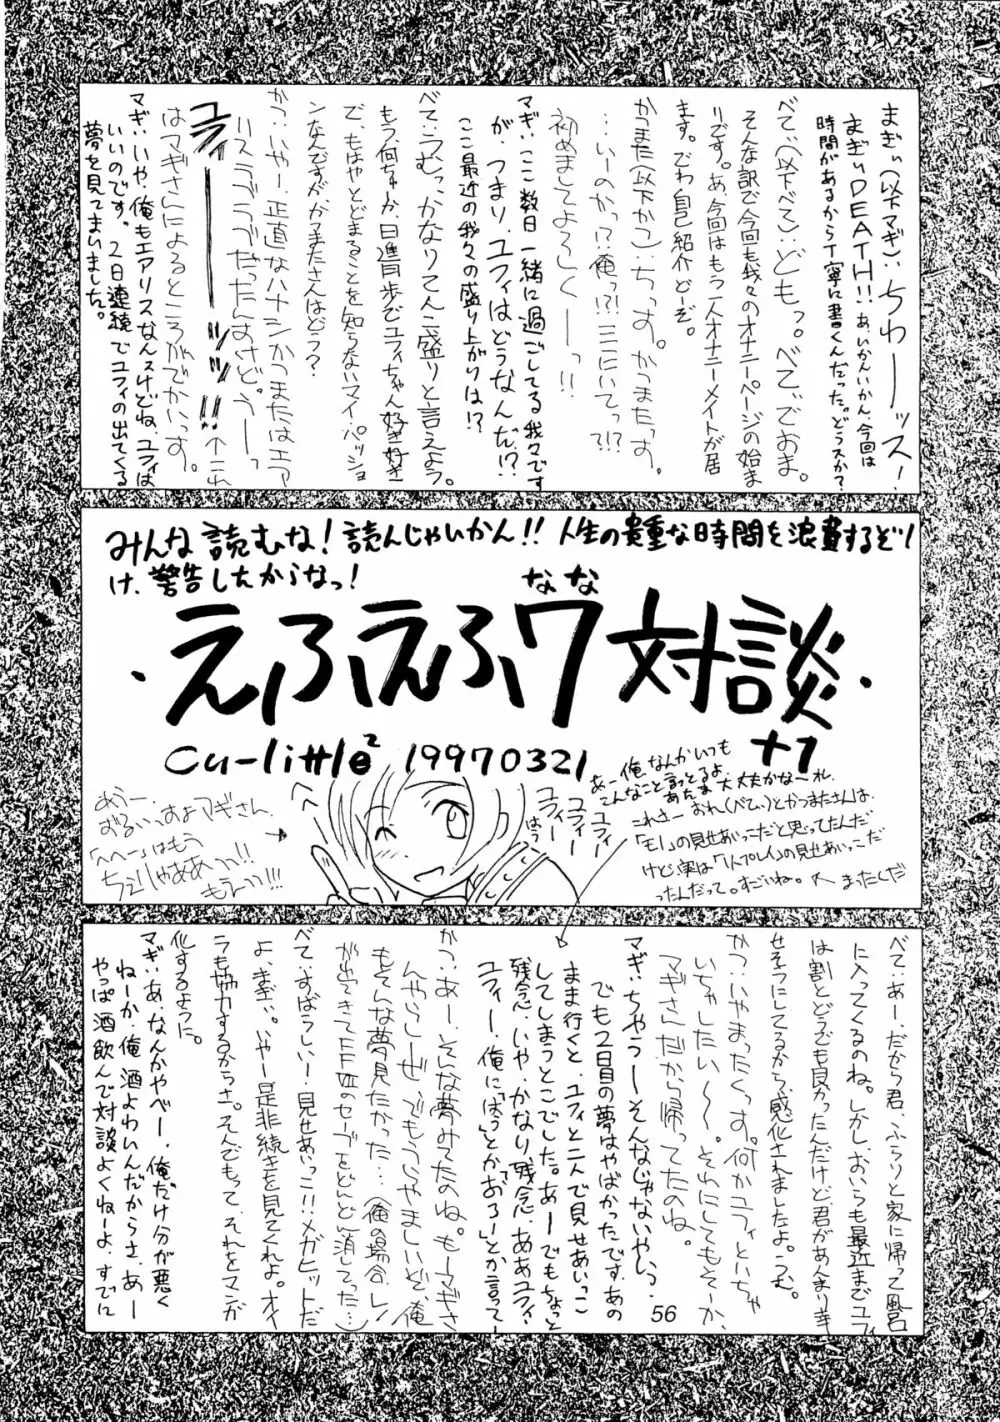 まぎぃ(以下マギ)：ちわーーッス！
まぎぃDEATH!!あいかんいかん、今回は
時間があるから丁寧に書くんだった。どうスか？
べて、(以下べて)：どもっ。べてでおま。
そんな訳で今回も我々のオナニーページの始ま
りです。あ、今回はもう一人オナニーメイトが居
ます。でわ自己紹介どーぞ。
かつまた(以下かつ)：ちっす。かつまたっす。
…いーのかっ!?俺っ!?ここにいてっ?!?
初めましてよろしくーーっ!!
マギ：ここ数日一緒に過ごしてる我々です
が、つまり、ユフィはどうなんだ!?
ここ最近の我々の盛り上がりは!?
べて：うむっ、かなりてんこ盛りと言えよう。
もう、何ちゅか、日進月歩でユフィちゃん好き好き
で、もはやとどまることを知らないマイ・パッショ
ンなんですが、かつまたさんはどう？
かつ：いやー、正直なハナシかつまたはエア
リスラブラブだったんすけど。うーーっ
はマギさんによるところがでかいっす。
ユフィーーーーッッ!!↑これ
マギ：いや、俺もエアリスなんスけどね、ユフィは
いいのです。2日連続でユフィの出てくる
夢を見てまいました。
みんな読むな！読んじゃいかん!!人生の貴重な時間を浪費するだけ
け、警告したからなっ！
なな
・えふえふ7対談・
+1
Cu-little2 19970321
あうー、
おるいっすよマギさん、
「へへー」はもう
ちぇりゃああっっ!!
もえっっ!!!
へへ
ユフィー
ユフィー
ユフィー
はぅ
あー俺なんかいつも
こんなこと言っとるよ
あたま大丈夫かな〜れ
これさー おれ(べて)とかつまたさんは、
「モノ」の見せあいっこだと思ってたんだ
けど実は「1人プレイ」の見せあいっこだ
ったんだって。すごいね。
べて：あー、だから君、ふらりと家に帰って風呂
に入ってくるのね。しかし、おいらも最近までユフィ
は割とどうでも良かったんだけど君があんまり幸
せそうにしてるから、感化されましたよ。うむ。
かつ：いやまったくっす。何かユフィといちゃ
いちゃしたい〜〜。それにしてもそーか、
マギさんだから帰ってたのね。
マギ：ちゃうーーそんなじゃないやいっ。
でも2日目の夢はやばかったです。あの
まま行くと、ユフィと二人で見せあいっこ
してしまうとこでした。あーーでもちょっと
残念、いや、かなり残念、ああユフィ、
ユフィー、俺に「はぅ」とか「おろー」とか言って
かつ：あー、そんな夢みてたのね。もーマギさ
んやらしーぜ でもうらやましいど、俺
もそんな夢見たかった…(俺の場合、レノ
が出てきてFFⅦのセーブをどんどん消してった…)
べて：すばらしいー！見せあいっこ!!メガヒットだ
よ、まぎぃ。いやー是非続きを見てくれよ。オイ
ラも協力するからさ。そんでもって、それをマンガ
化するように。
マギ：あ、なんかやべー、俺だけ分が悪く
ねーか、俺、酒よわいんだからさ、あー
やっぱ酒飲んで対談よくねーよ、すでに
56